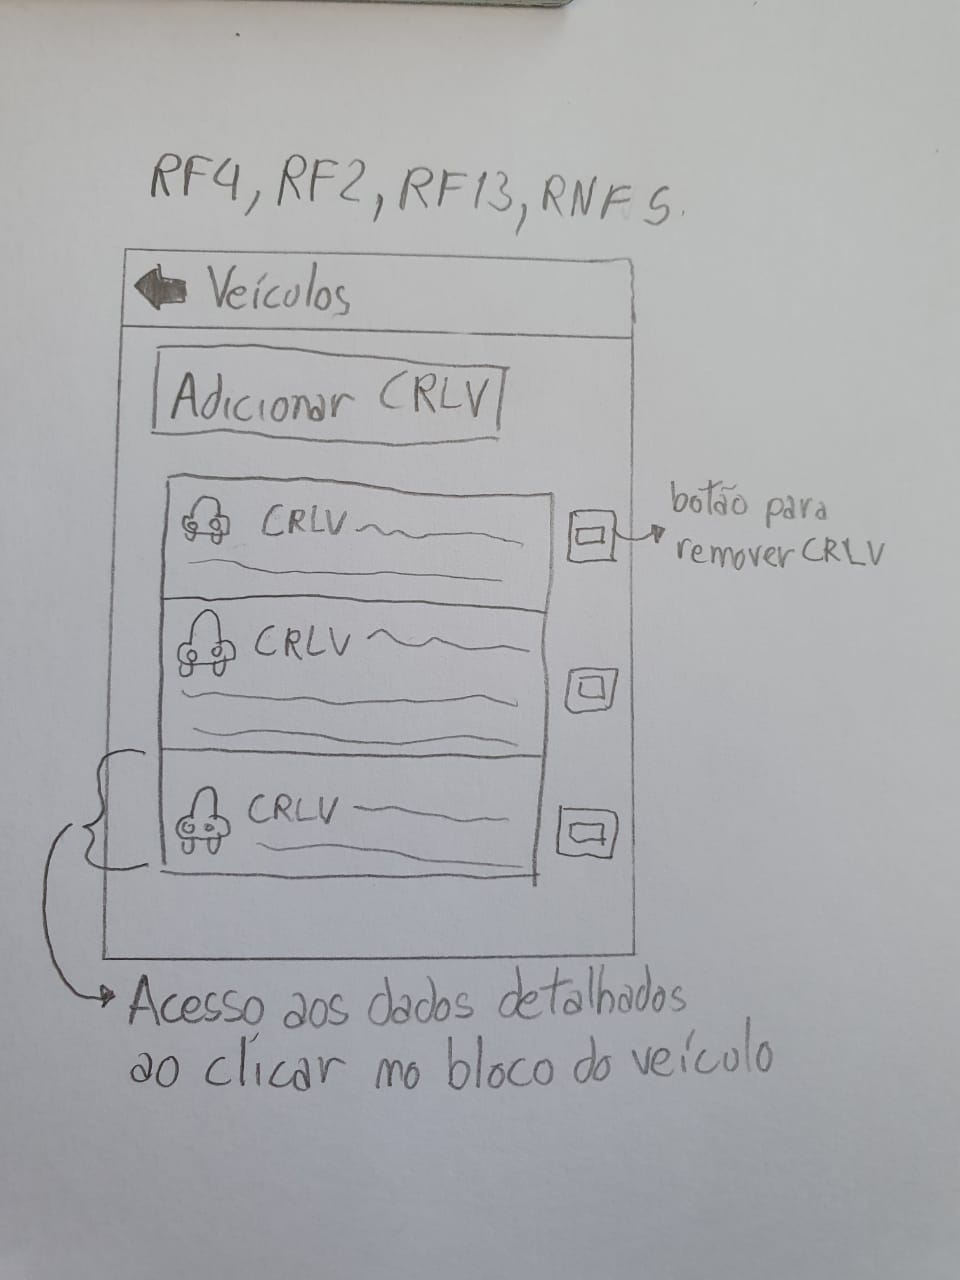 RF4, RF2, RF13, RNF5.
Veículos
Adicionar CRLV
CRLV
botão para
remover CRLV
CRLV
CRLV
Acesso aos dados detalhados
ao clicar no bloco do veículo